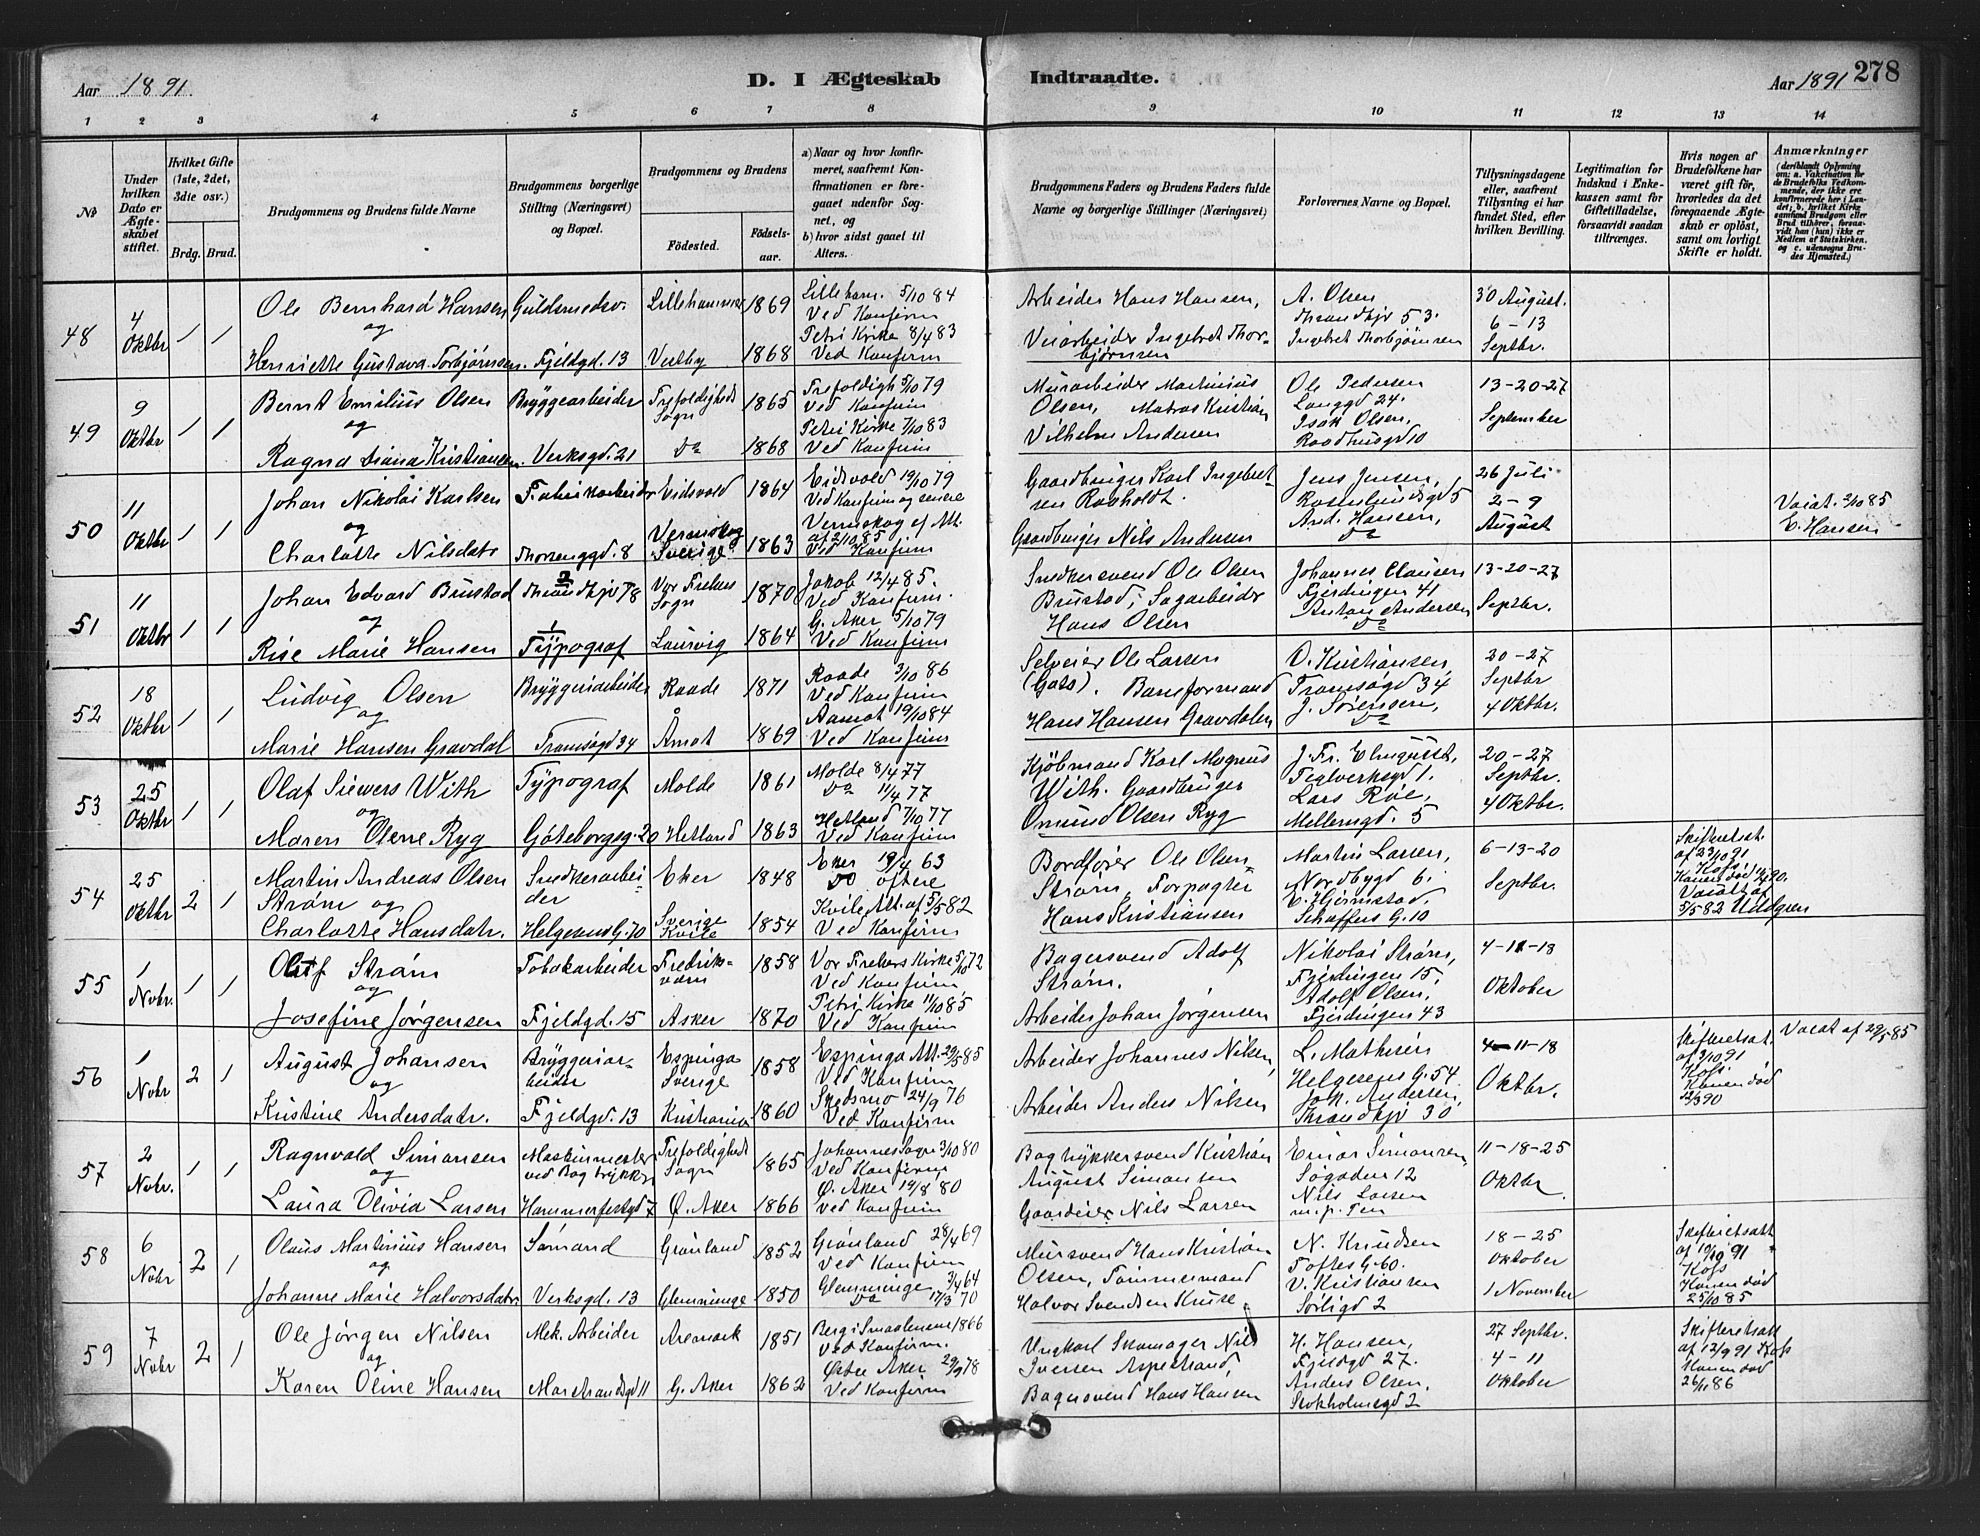 Aar 1891.
D. I Ægteskab Indtraadte.
Aar 1891 278
1 2 3 4 5 6 7 8 9 10 11 12 13 14
No
Under hvilken Dato er Ægteskabet stiftet.
Hvilket Gifte (1ste, 2det, 3die osv.)
Brdg. Brud.
Brudgommens og Brudens fulde Navne
Brudgommens borgerlige Stilling (Næringsvei) og Bopæl.
Brudgommens og Brudens
Födested. Födselsaar.
a) Naar og hvor konfirmeret, saafremt Konfirmationen er foregaaet udenfor Sognet, og
b) hvor sidst gaaet til Alters.
Brudgommens Faders og Brudens Faders fulde Navne og borgerlige Stillinger (Næringsvei)
Forlovernes Navne og Bopæl.
Tillysningsdagene eller, saafremt Tillysning ei har fundet Sted, efter hvilken Bevilling.
Legitimation for Indskud i Enkekassen samt for Giftetilladelse, forsaavidt saadan tiltrænges.
Hvis nogen af Brudefolkene har været gift för, hvorledes da det foregaaende Ægteskab er oplöst, samt om lovligt Skifte er holdt.
Anmærkninger
(deriblandt Oplysning om: a. Vakcination for de Brudefolks Vedkommende, der ikke ere konfirmerede her i Landet; b. hvilket Kirkesamfund Brudgom eller Brud tilhörer, forsaavidt han (hun) ikke er Medlem af Statskirken, og c. udensogns Brudes Hjemsted.)
48 4 Oktbr 1 1
Ole Bernhard Hansen Guldsmedsv. Lillehammer 1869 Lilleham. 5/10 84 Ved Konfirm
og
Henriette Gustava Torbjørnsen. Fjeldgd. 13 Vestby 1868 Petri Kirke 8/4 83 Ved Konfirm
Arbeider Hans Hansen,
Veiarbeider Ingebret Thorbjørnsen
A. Olsen Thrandhjv 53.
Ingebret Thorbjørnsen
30 August. 6-13 Septbr.
49 9 Oktbr 1 1
Bernt Emilius Olsen Bryggearbeider Trefoldigheds Sogn 1865 Trefoldigh 5/10 79 Ved Konfirm
og
Ragna Diana Kristiansen. Verksgd. 21 Do 1868 Petri Kirke 7/10 83 Ved Konfirm
Murarbeider Martinius Olsen, Matros Kristian Vilhelm Andersen
Ole Pedersen Langgd 24.
Isak Olsen, Raadhusgd 10
13-20-27 September
50 11 Oktbr 1 1
Johan Nikolai Karlsen Fabrikarbeider Eidsvold 1864 Eidsvold 19/10 79 Ved Konfirm og senere
og
Charlotte Nilsdatr Thorvenggd. 8 Vermskog Sverige. 1863 Vermskog ef Att. af 2/10 85 Ved Konfirm
Gaardbruger Karl Ingebretsen Rosholdt.
Gaardbruger Nils Andersen
Jens Jensen, Rosenlundsgd 5
And. Hansen, Do
26 Juli 2-9 August
Vacat. 2/10 85 E. Hansen
51 11 Oktbr 1 1
Johan Edvard Brustad Thrandhjv 78 Vor Frelsers Sogn 1870 Jakob 12/4 85. Ved Konfirm.
og
Rise Marie Hansen Typograf Laurvig 1864 G. Aker 5/10 79 Ved Konfirm
Snedkersvend Ole Olsen Brustad; Sagarbeider Hans Olsen
Johannes Clausen Fjerdingen 41
Anton Andersen Do
13-20-27 Septbr.
52 18 Oktbr 1 1
Ludvig Olsen Bryggeriarbeider Raade 1871 Raade 3/10 86 Ved Konfirm
og
Marie Hansen Gravdal Tromsøgd 34 Åmot 1869 Aamot 19/10 84 Ved Konfirm
Selveier Ole Larsen (Goto). Baneformand Hans Hansen Gravdalen
O. Kristiansen, Tromsøgd 34
J. Sørensen, Do
20-27 Septbr 4 Oktbr.
53 25 Oktbr 1 1
Olaf Siewers With Typograf Molde 1861 Molde 8/4 77 Do 11/4 77
og
Maren Olene Ryg Gøteborgsg. 20 Hetland 1863 Hetland 7/10 77 Ved Konfirm
Kjøbmand Karl Magnus With. Gaardbruger Omund Olsen Ryg
J. Fr. Elmquist, Teglverksgd 1.
Lars Røe, Mellemgd. 5
20-27 Septbr. 4 Oktbr.
54 25 Oktbr 2 1
Martin Andreas Olsen Strøm og Snedkerarbeider Eker 1848 Eker 19/4 63 Do oftere
Charlotte Hansdatr. Helgesens G. 70 Sverige Kvile 1854 Kvile Att. af 5/5 82 Ved Konfirm
Bordfoier Ole Olsen Strøm, Forpagter Hans Kristiansen
Martin Larsen, Nordbygd 6.
C. Hjermstad, Schaffers G. 10
6-13-20 Septbr.
Skifteatt. af 23/10 91 Kofs
Vacatt af 5/5 82 Uddgren
55 1 Nobr. 1 1
Olaf Strøm Tobakarbeider Fredriksværn 1858 Vor Frelsers Kirke 5/10 72 Ved Konfirm
og
Josefine Jørgensen Fjeldgd. 15 Asker 1870 Petri Kirke 11/10 85 Ved Konfirm
Bagersvend Adolf Strøm.
Arbeider Johan Jørgensen
Nikolai Strøm, Fjerdingen 15,
Adolf Olsen, Fjerdingen 43
4-11-18 Oktober
56 1 Nobr 2 1
August Johansen Bryggeriarbeider Espinga Sverige 1858 Espinga Att. 29/5 85 Ved Konfirm
og
Kristine Andersdatr. Fjeldgd. 13 Kristiania 1860 Skedsmo 24/9 76 Ved Konfirm
Arbeider Johannes Nilsen,
Arbeider Anders Nilsen
L. Mathisen Helgesens G. 54
Joh. Andersen, Thrandhjv 30
4-11-18 Oktbr.
Skifteretsat. af 3/10 91 Kofs. Konen død
Vacat af 29/5 85
57 2 Nobr. 1 1
Ragnvald Simonsen Maskinmester ved Bogtrykker Trefoldigheds Sogn 1865 Johannes Sogn 3/10 80 Ved Konfirm
og
Laura Olivia Larsen Hammerfestgd 7 Ø. Aker 1866 Ø. Aker 19/8 80 Ved Konfirm
Bogtrykkersvend Kristian August Simonsen
Gaardeier Nils Larsen
Einar Simonsen, Søgaden 12
Nils Larsen
11-18-25 Oktbr.
58 6 Nobr 2 1
Olaus Martinius Hansen Sømand Grønland 1852 Grønland 28/4 69 Ved Konfirm
og
Johanne Marie Halvorsdatr. Verksgd. 13 Glemminge 1850 Glemminge 3/4 64 Do 17/3 70
Mursvend Hans Kristian Olsen, Tømmermand Halvor Svendsen Kruse.
N. Knudsen Toftes G. 60.
V. Kristiansen Sørligd 2
18-25 Oktober 1 November
Skifteretsatt af 19/10 91 Kofs Konen død 25/10 85
59 7 Nobr 2 1
Ole Jørgen Nilsen Mek. Arbeider Aremark 1851 Berg i Smaalenene 1866 Ved Konfirm.
og
Karen Oline Hansen Marstrandsgd 11 G. Aker 1862 Østre Aker 29/9 78 Ved Konfirm
Ungkarl Skomager Nils Iversen Aspestrand,
Bagersvend Hans Hansen
H. Hansen, Fjeldgd 27.
Anders Olsen, Stokholmsgd 2
27 Septbr. 4-11 Oktober
Skifteretsatt af 12/9 91 Kofs Konen død 26/11 86